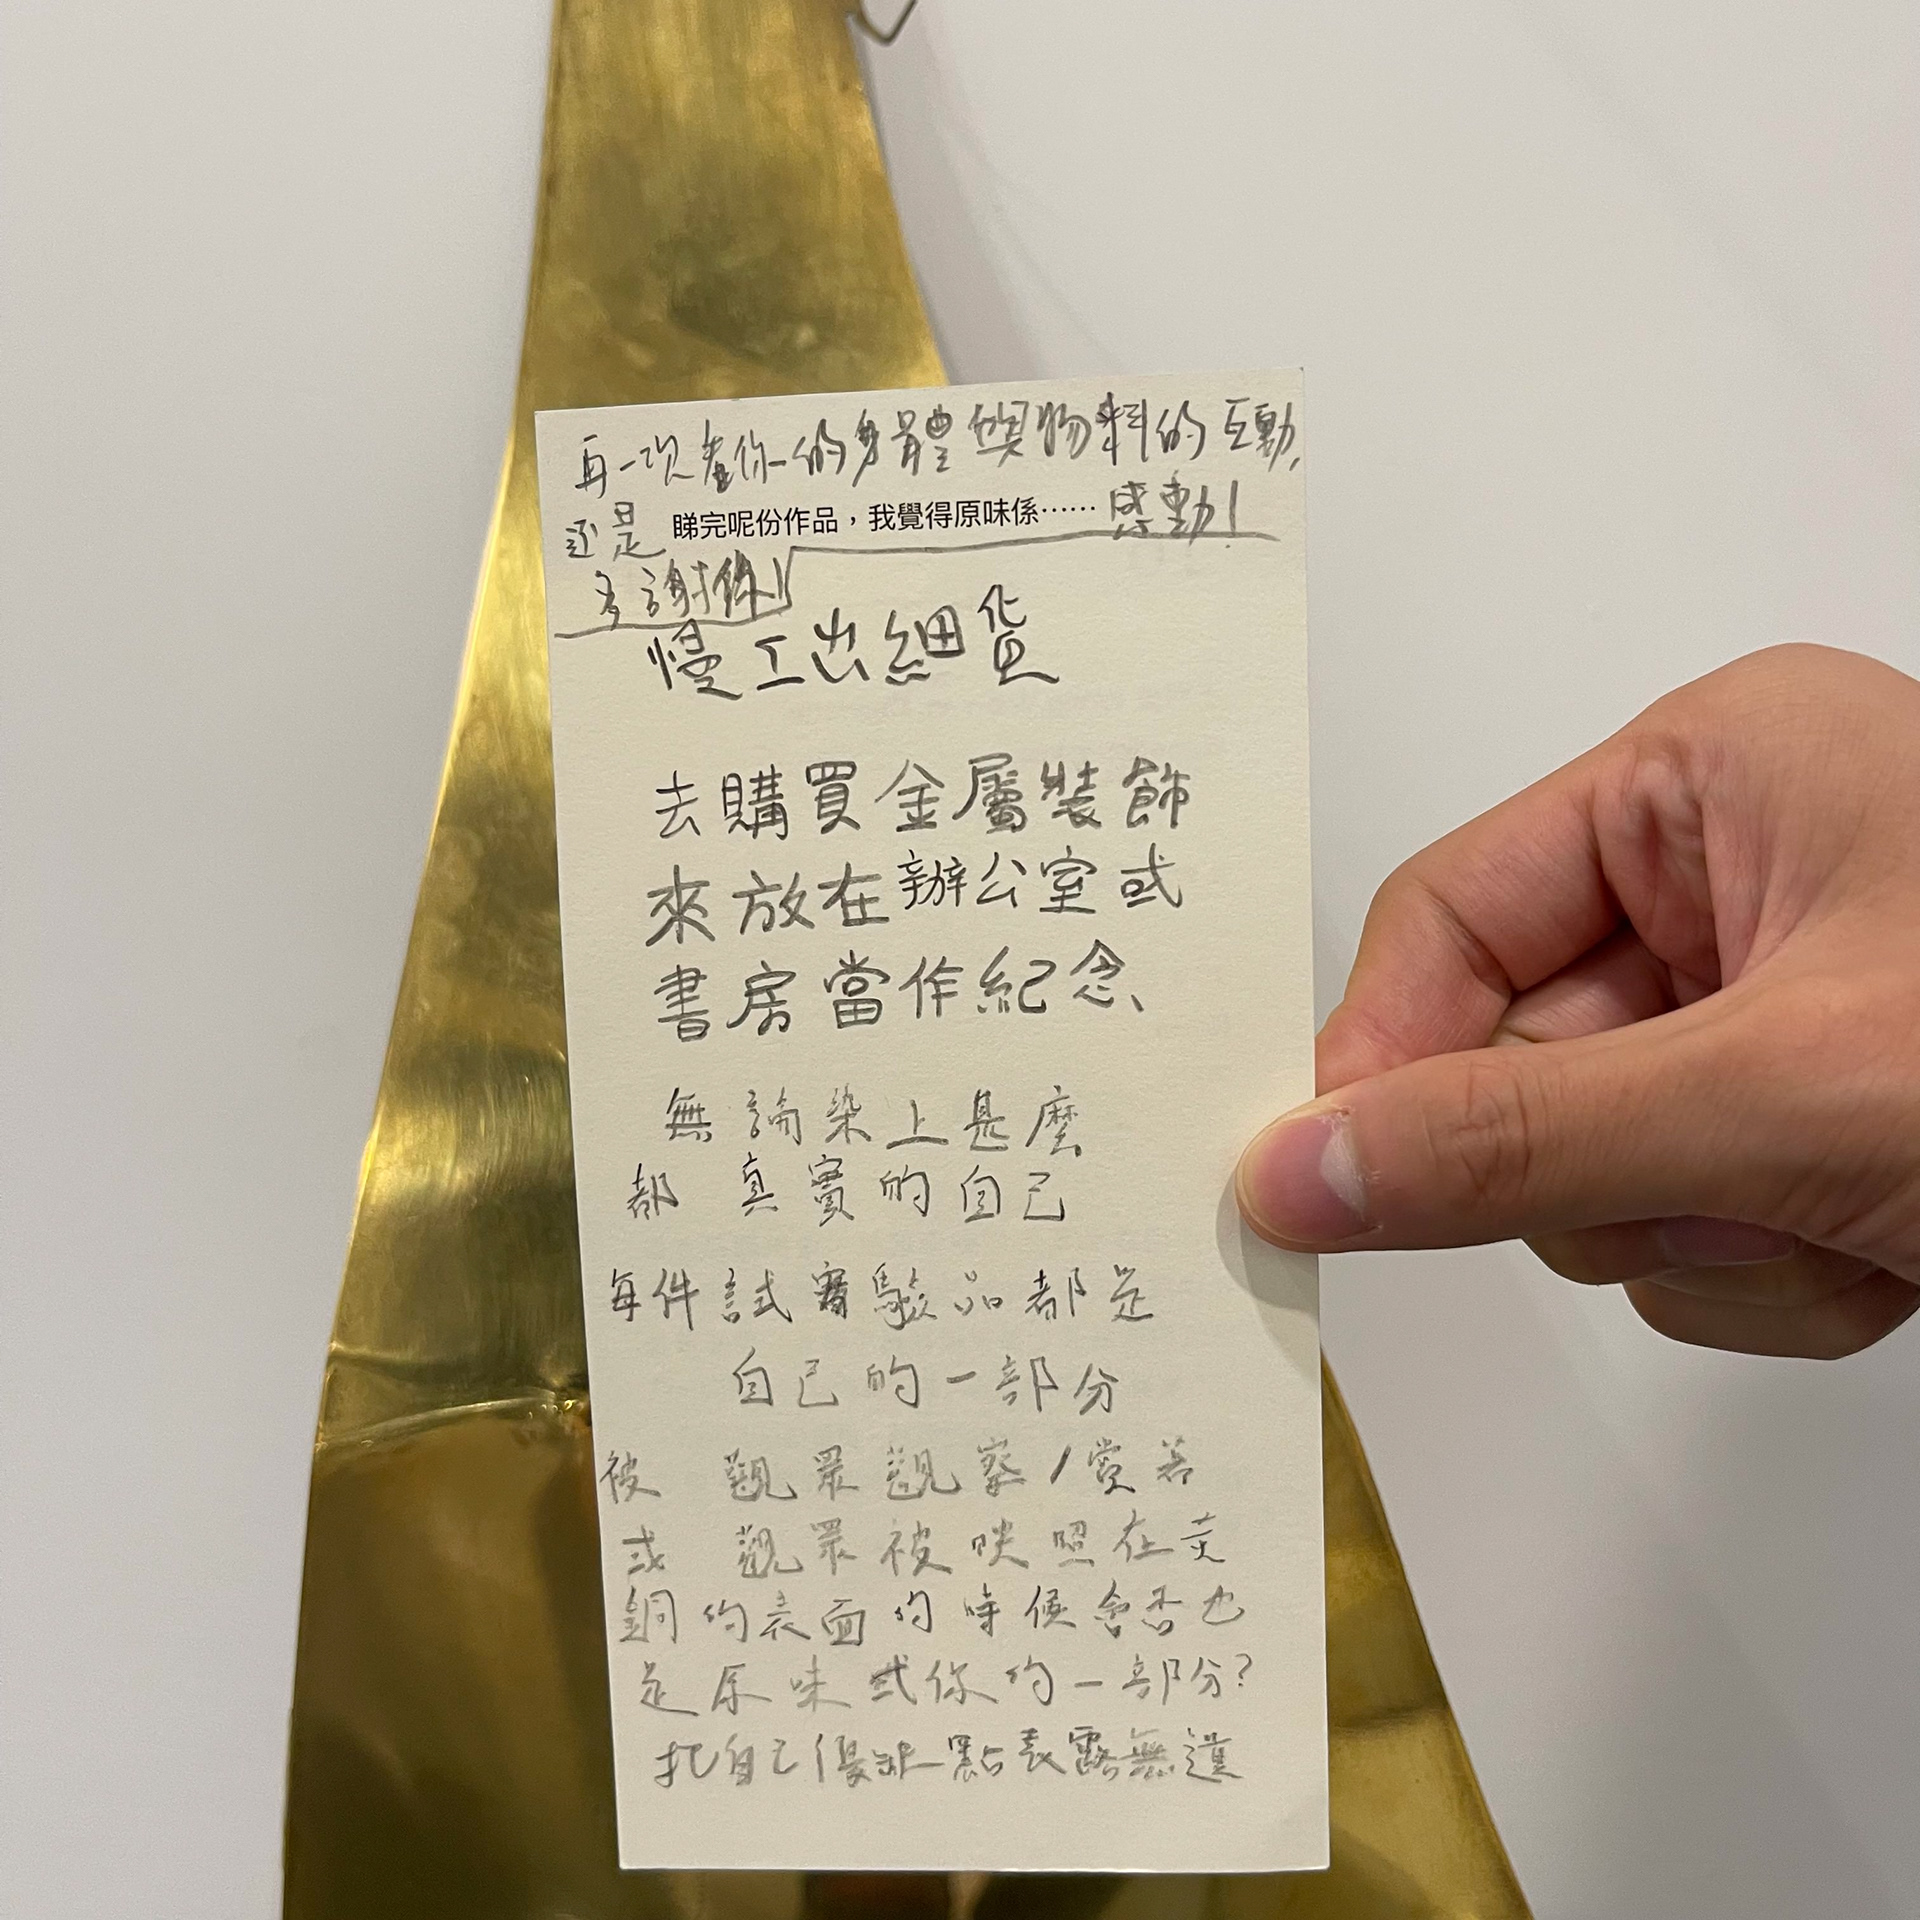 再一次看你的身體與物料的互動,
還是
睇完呢份作品，我覺得原味係⋯⋯
感動！
多謝你！
慢工出細貨
去購買金屬裝飾
來放在辦公室或
書房當作紀念、
無論染上甚麼
都 真實的自己
每件試實驗品都是
自己的一部分
被 觀眾觀察/賞著
或 觀眾被映照在黃
銅的表面的時候會否也
是原味或你的一部分?
把自己優缺點表露無遺